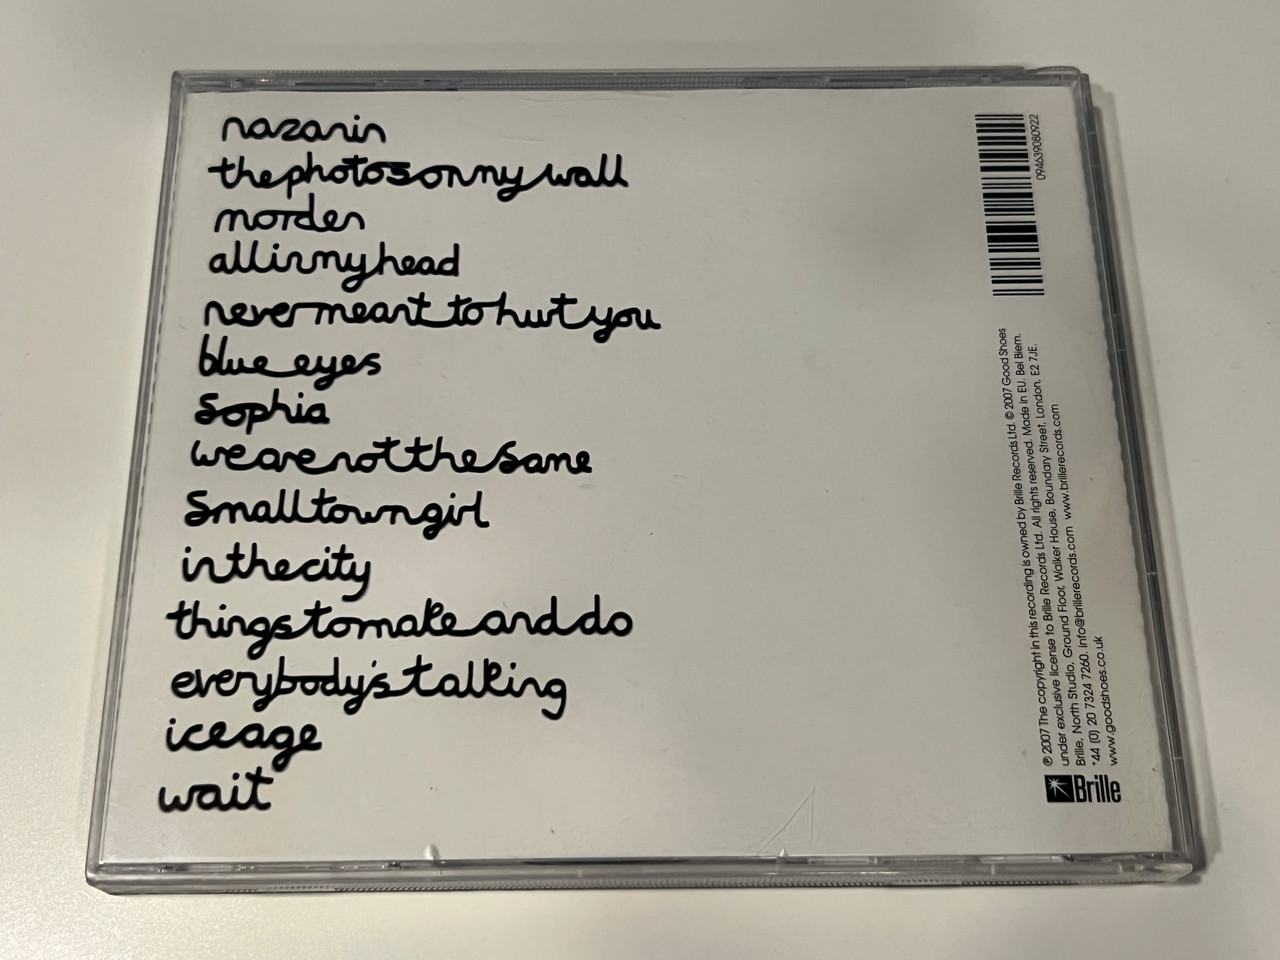 nazanin
the photos on my wall
morden
all in my head
never meant to hurt you
blue eyes
Sophia
we are not the same
Small town girl
in the city
things to make and do
everybody's talking
ice age
wait
094639080922
℗ 2007 The copyright in this recording is owned by Brille Records Ltd. © 2007 Good Shoes
under exclusive license to Brille Records Ltd. All rights reserved. Made in EU. Bel Biem.
Brille, North Studio, Ground Floor, Walker House, Boundary Street, London, E2 7JE.
+44 (0) 20 7324 7260. info@brillerecords.com www.brillerecords.com
www.goodshoes.co.uk
Brille